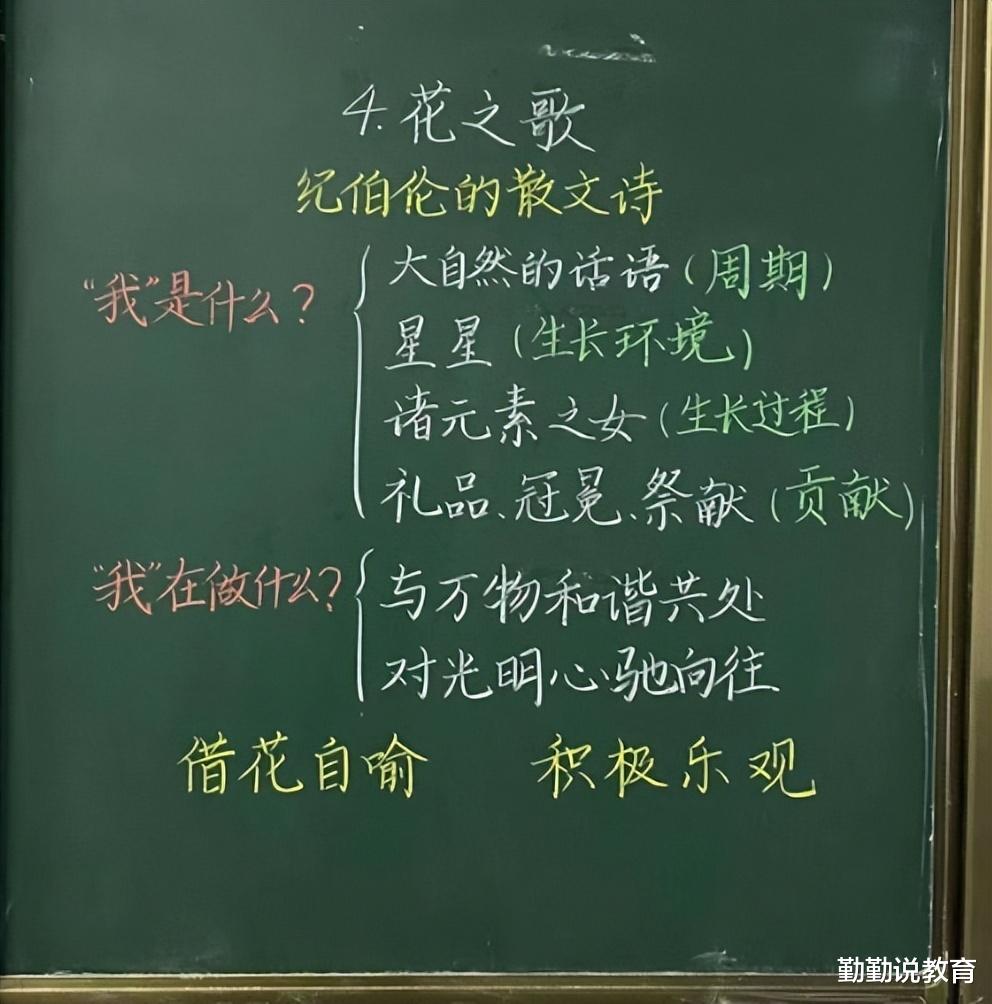 4.花之歌
纪伯伦的散文诗
“我”是什么？
大自然的话语（周期）
星星（生长环境）
诸元素之女（生长过程）
礼品、冠冕、祭献（贡献）
“我”在做什么？
与万物和谐共处
对光明心驰向往
借花自喻 积极乐观
勤勤说教育